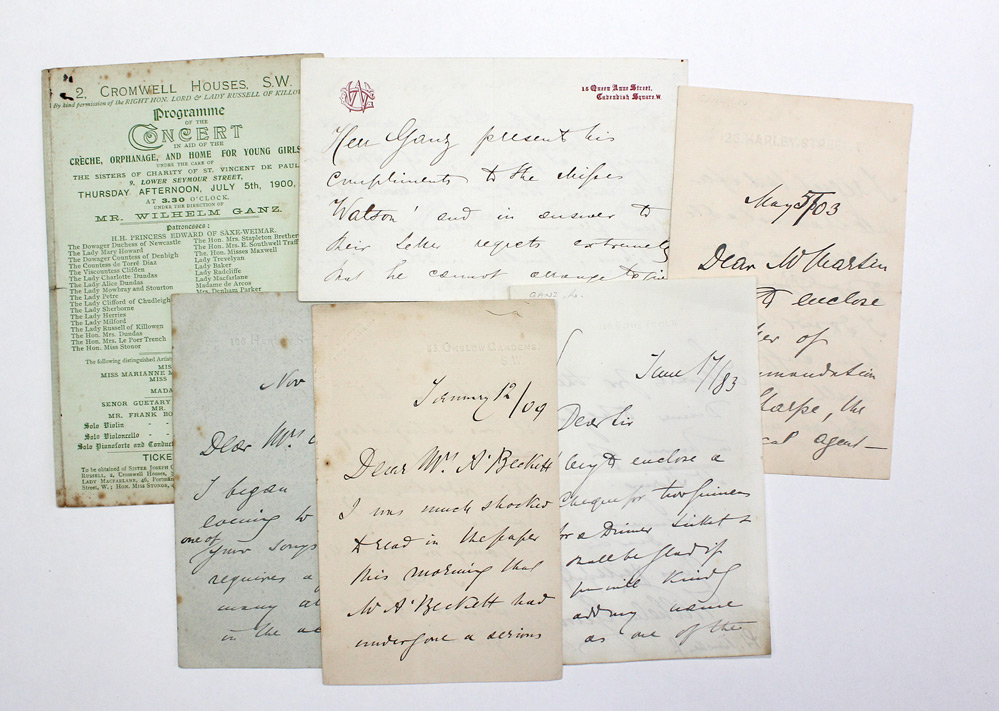 2, CROMWELL HOUSES, S.W.
By kind permission of the RIGHT HON. LORD & LADY RUSSELL OF KILLOW
Programme
OF THE
CONCERT
IN AID OF THE
CRÈCHE, ORPHANAGE, AND HOME FOR YOUNG GIRLS
UNDER THE CARE OF
THE SISTERS OF CHARITY OF ST. VINCENT DE PAUL
9, LOWER SEYMOUR STREET,
THURSDAY AFTERNOON, JULY 5th, 1900,
AT 3.30 O'CLOCK,
UNDER THE DIRECTION OF
MR. WILHELM GANZ.
Patronesses:
H.H. PRINCESS EDWARD OF SAXE-WEIMAR.
The Dowager Duchess of Newcastle
The Lady Mary Howard
The Dowager Countess of Denbigh
The Countess de Torre Diaz
The Viscountess Clifden
The Lady Charlotte Dundas
The Lady Alice Dundas
The Lady Mowbray and Stourton
The Lady Petre
The Lady Clifford of Chudleigh
The Lady Sherborne
The Lady Herries
The Lady Milford
The Lady Russell of Killowen
The Hon. Mrs. Dundas
The Hon. Mrs. Le Poer Trench
The Hon. Miss Stonor
The Hon. Mrs. Stapleton Brether
The Hon. Mrs. E. Southwell Traff
The Hon. Misses Maxwell
Lady Trevelyan
Lady Baker
Lady Radcliffe
Lady Macfarlane
Madame de Arcos
Mrs. Denham Parker
The following distinguished Artis
MISS
MISS MARIANNE
MISS
MADA
SENOR GUETARY
MR.
MR. FRANK BO
Solo Violin
Solo Violoncello
Solo Pianoforte and Conduct
TICKE
To be obtained of SISTER JOSEPH
RUSSELL, 2, Cromwell Houses,
LADY MACFARLANE, 46, Portman
Street, W.; HON. MISS STONOR,
16 Queen Anne Street,
Cavendish Square. W.
Herr Ganz present his
compliments to the Misses
Watson' and in answer to
their letter regrets extremely
that he cannot arrange to
May 5/03
Dear Mr Marsten
to enclose
of
mmendation
Sharpe, the
cal agent—
Nov
Dear Mrs
I began
evening to
one of your songs
requires a
many
in the
25. ONSLOW GARDENS,
S.W.
January 12/09
Dear Mrs A'Beckett
I was much shocked
to read in the paper
this morning that
Mr A'Beckett had
undergone a serious
GANZ,
June 17/83
Dear Sir
beg to enclose a
Cheque for two guineas
for a Dinner ticket &
shall be glad if
you will kindly
add my name
as one of the